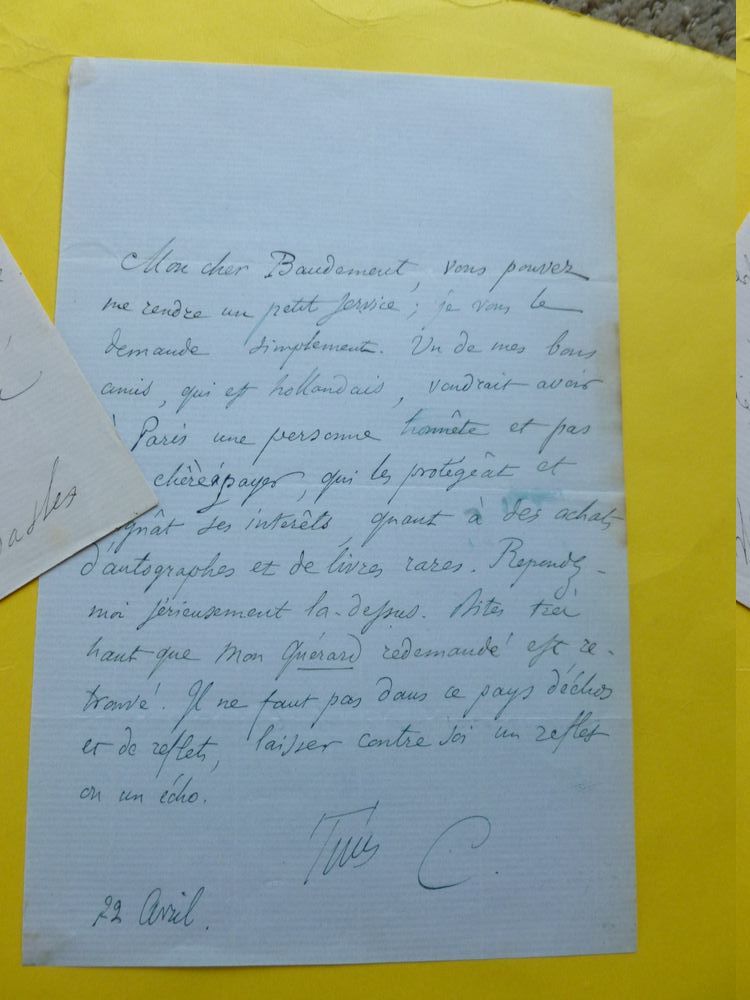 Mon cher Baudement, vous pouvez
me rendre un petit service ; je vous le
demande simplement. Un de mes bons
amis, qui est hollandais, voudrait avoir
à Paris une personne honnête et pas
chère à payer, qui les protégeât et
gnât ses interêts, quant à des achats
d'autographes et de livres rares. Repondez-
moi sérieusement la-dessus. Dites très
haut que mon Guérard redemandé est re-
trouvé. Il ne faut pas dans ce pays d'échos
et de reflets, laisser contre soi un reflet
ou un écho.
C.
22 Avril.